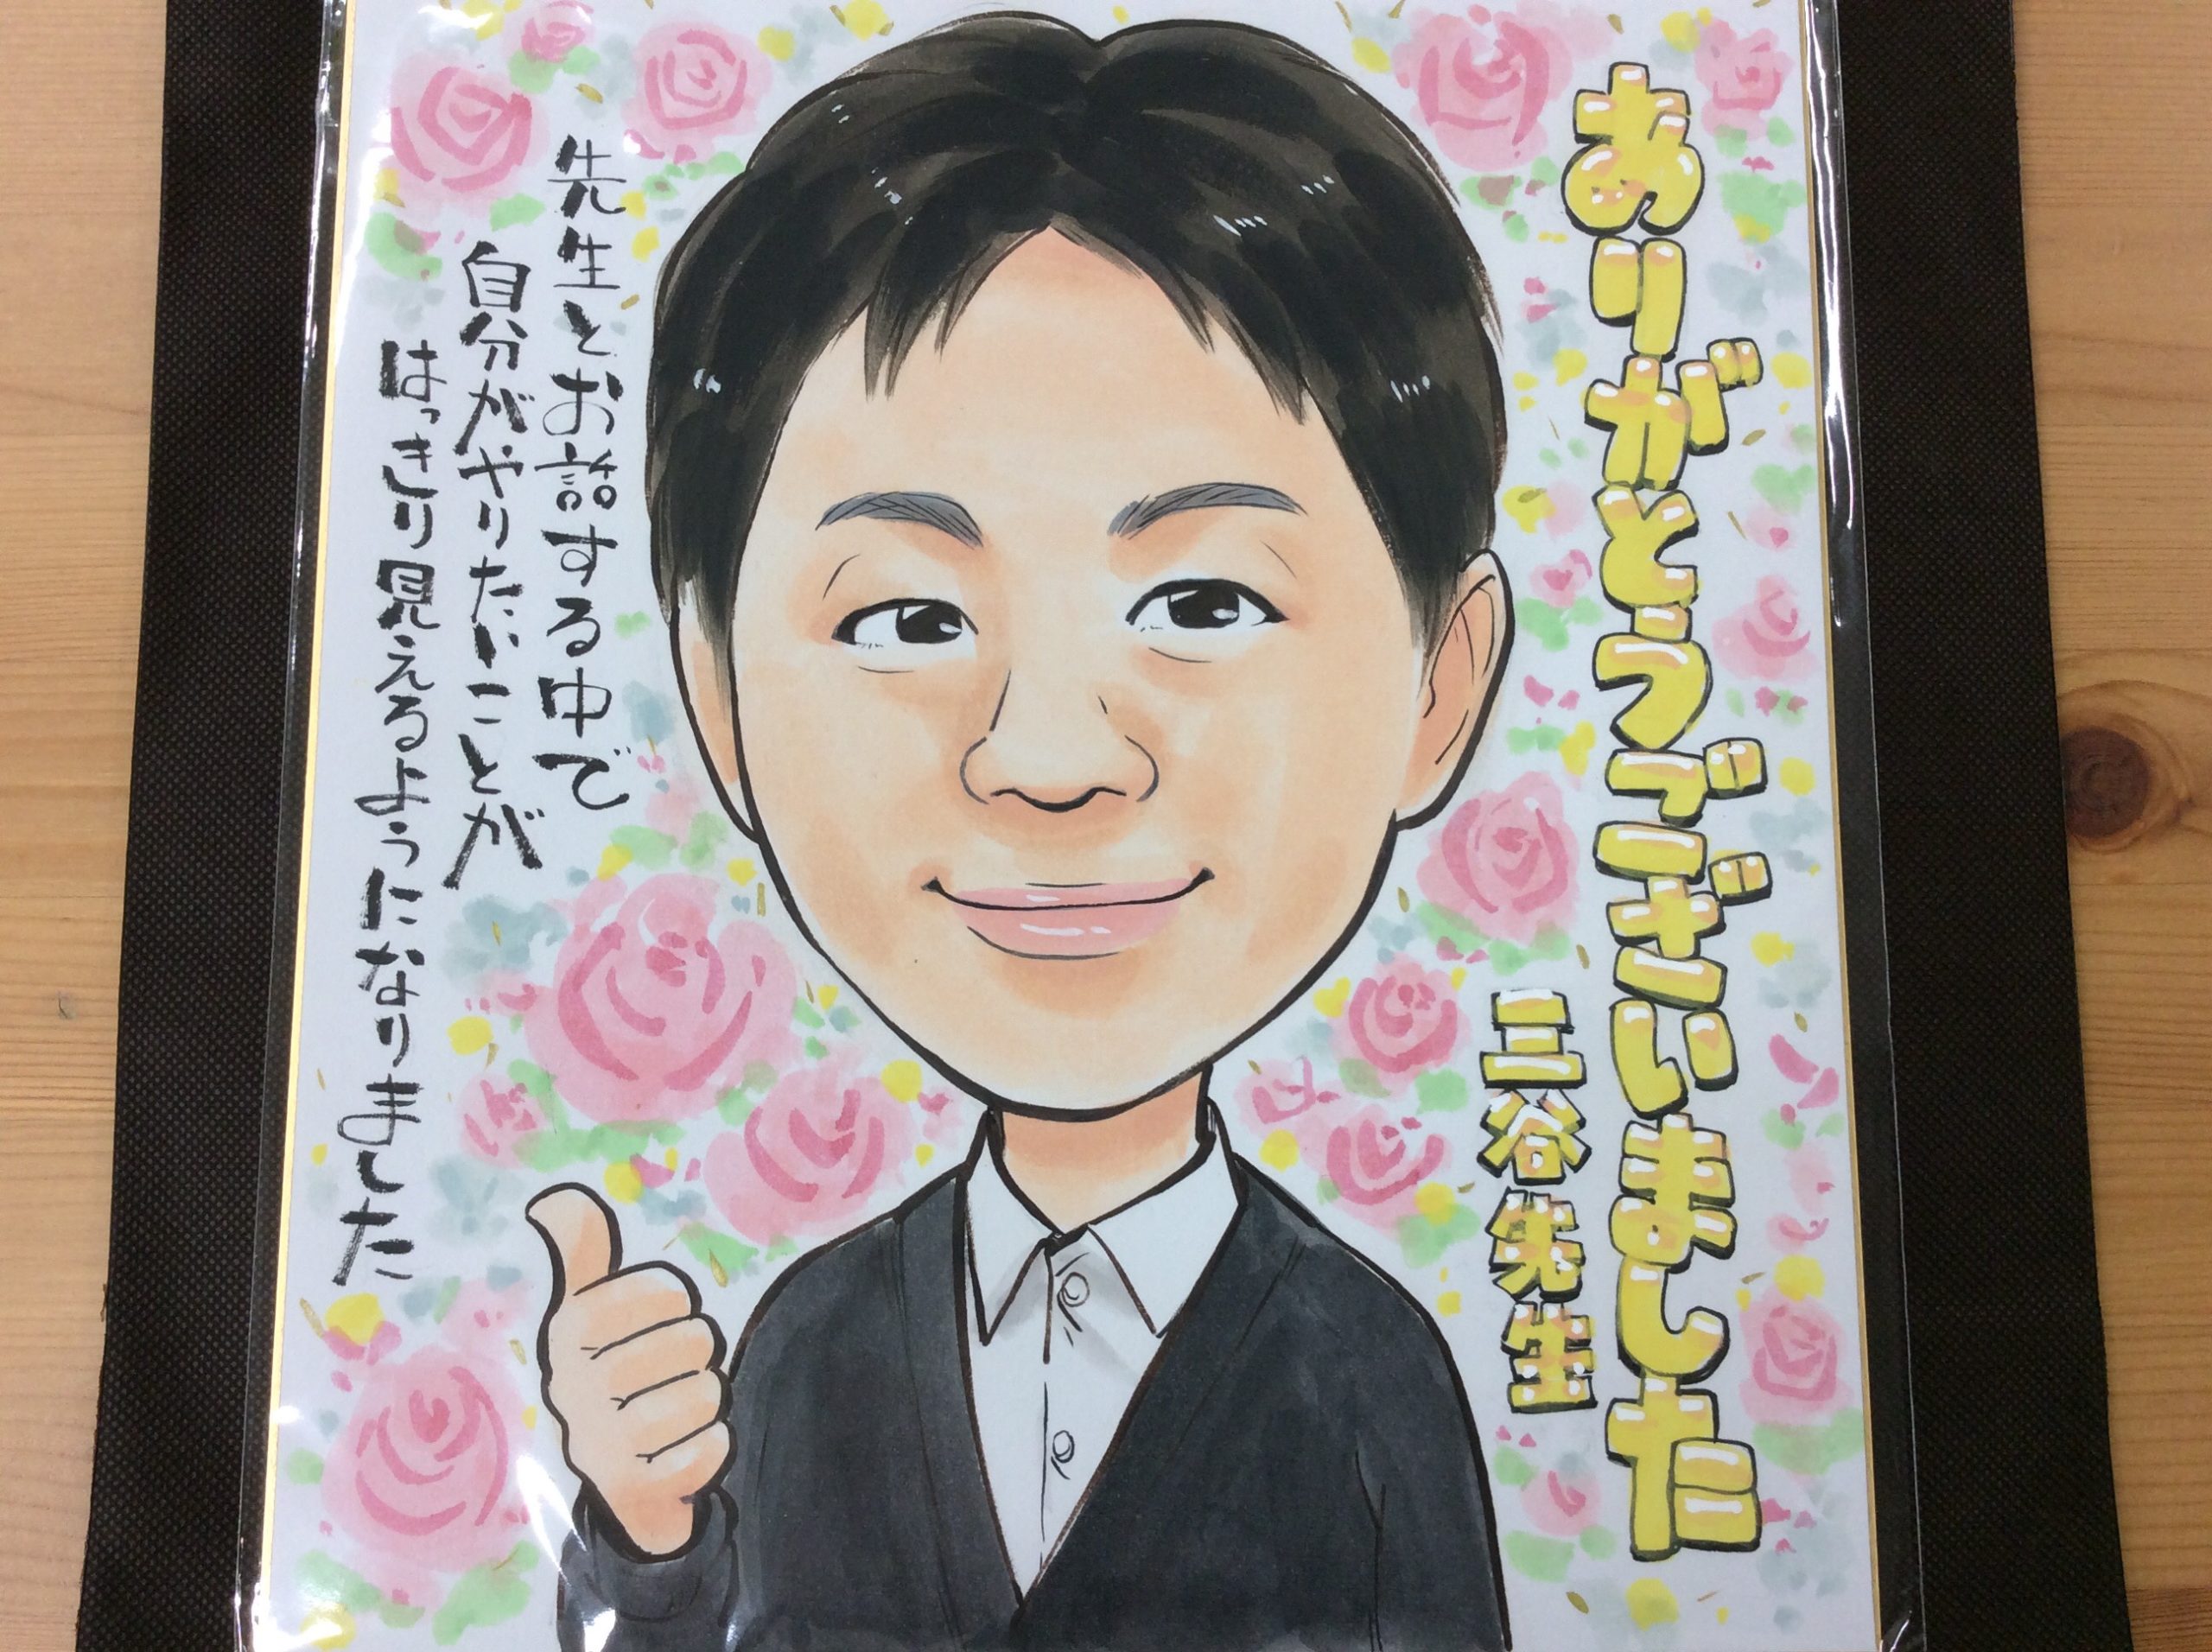 ありがとうございました
三谷先生
先生とお話する中で
自分がやりたいことが
はっきり見えるようになりました